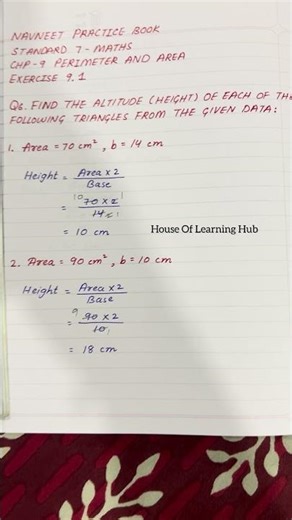 NAVNEET PRACTICE BOOK
STANDARD 7 - MATHS
CHP-9 PERIMETER AND AREA
EXERCISE 9.1
Q6. FIND THE ALTITUDE (HEIGHT) OF EACH OF THE
FOLLOWING TRIANGLES FROM THE GIVEN DATA:
1. Area = 70 cm², b = 14 cm
Height = Area x 2
Base
= 10 70 x 2 1
14 2 1
= 10 cm
House Of Learning Hub
2. Area = 90 cm², b = 10 cm
Height = Area x 2
Base
= 9 90 x 2
10 1
= 18 cm